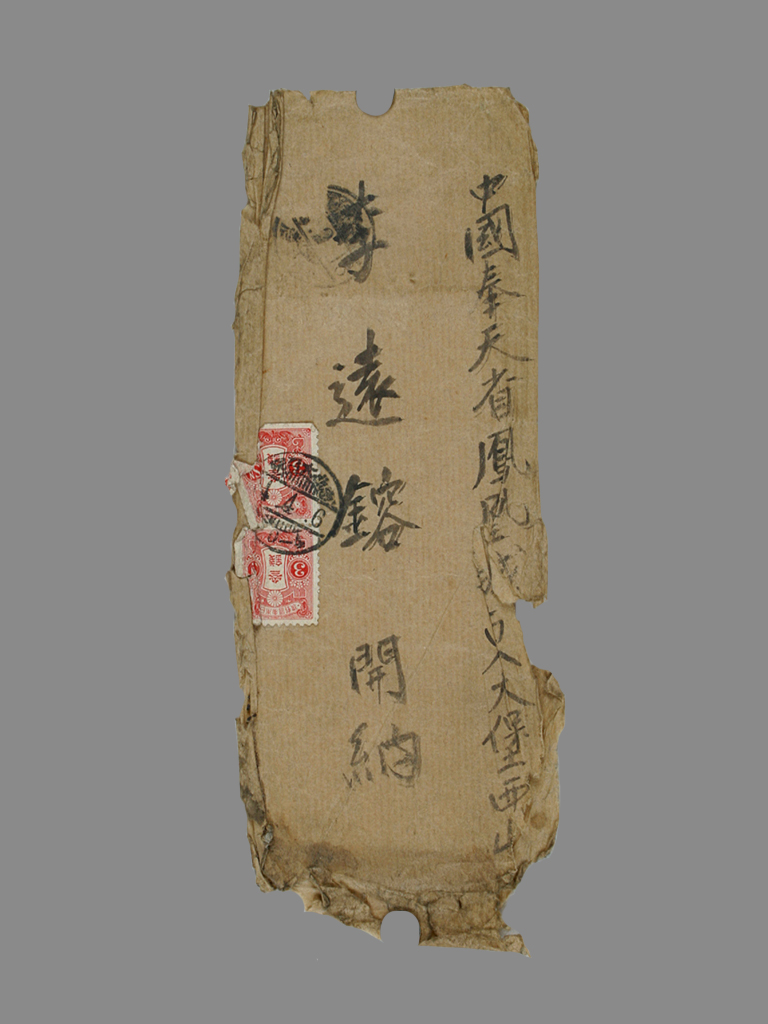 中國奉天省鳳凰城 大堡西山
李遠鎔 開納
4.6
3